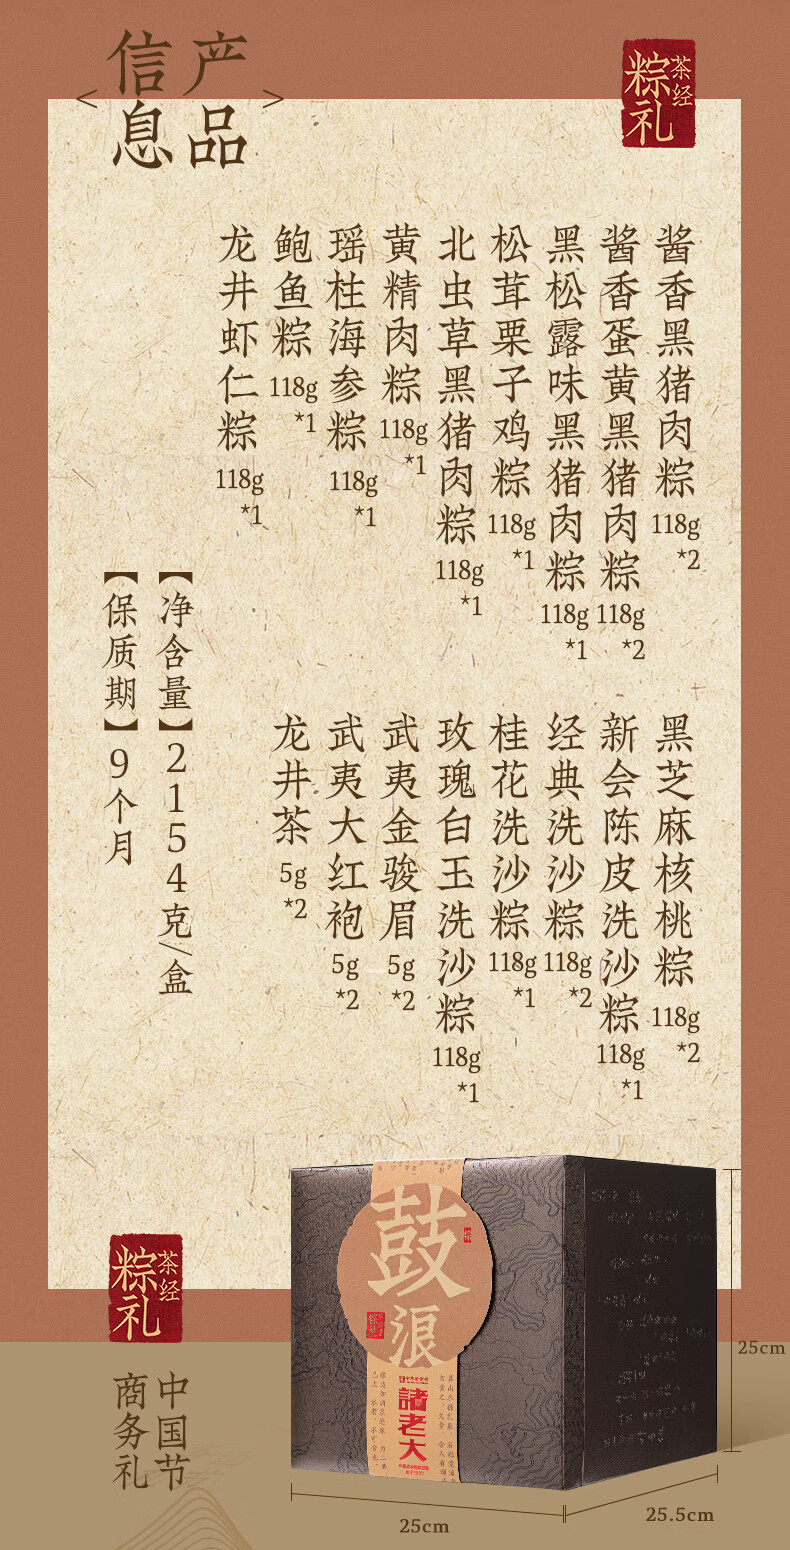 产品
信息
<
>
茶经
粽礼
酱香黑猪肉粽 118g *2
酱香蛋黄黑猪肉粽 118g *2
黑松露味黑猪肉粽 118g *1
松茸栗子鸡粽 118g *1
北虫草黑猪肉粽 118g *1
黄精肉粽 118g *1
瑶柱海参粽 118g *1
鲍鱼粽 118g *1
龙井虾仁粽 118g *1
黑芝麻核桃粽 118g *2
新会陈皮洗沙粽 118g *1
经典洗沙粽 118g *2
桂花洗沙粽 118g *1
玫瑰白玉洗沙粽 118g *1
武夷金骏眉 5g *2
武夷大红袍 5g *2
龙井茶 5g *2
【净含量】2154克/盒
【保质期】9个月
茶经
粽礼
中国节
商务礼
鼓浪
諸老大
25cm
25cm
25.5cm